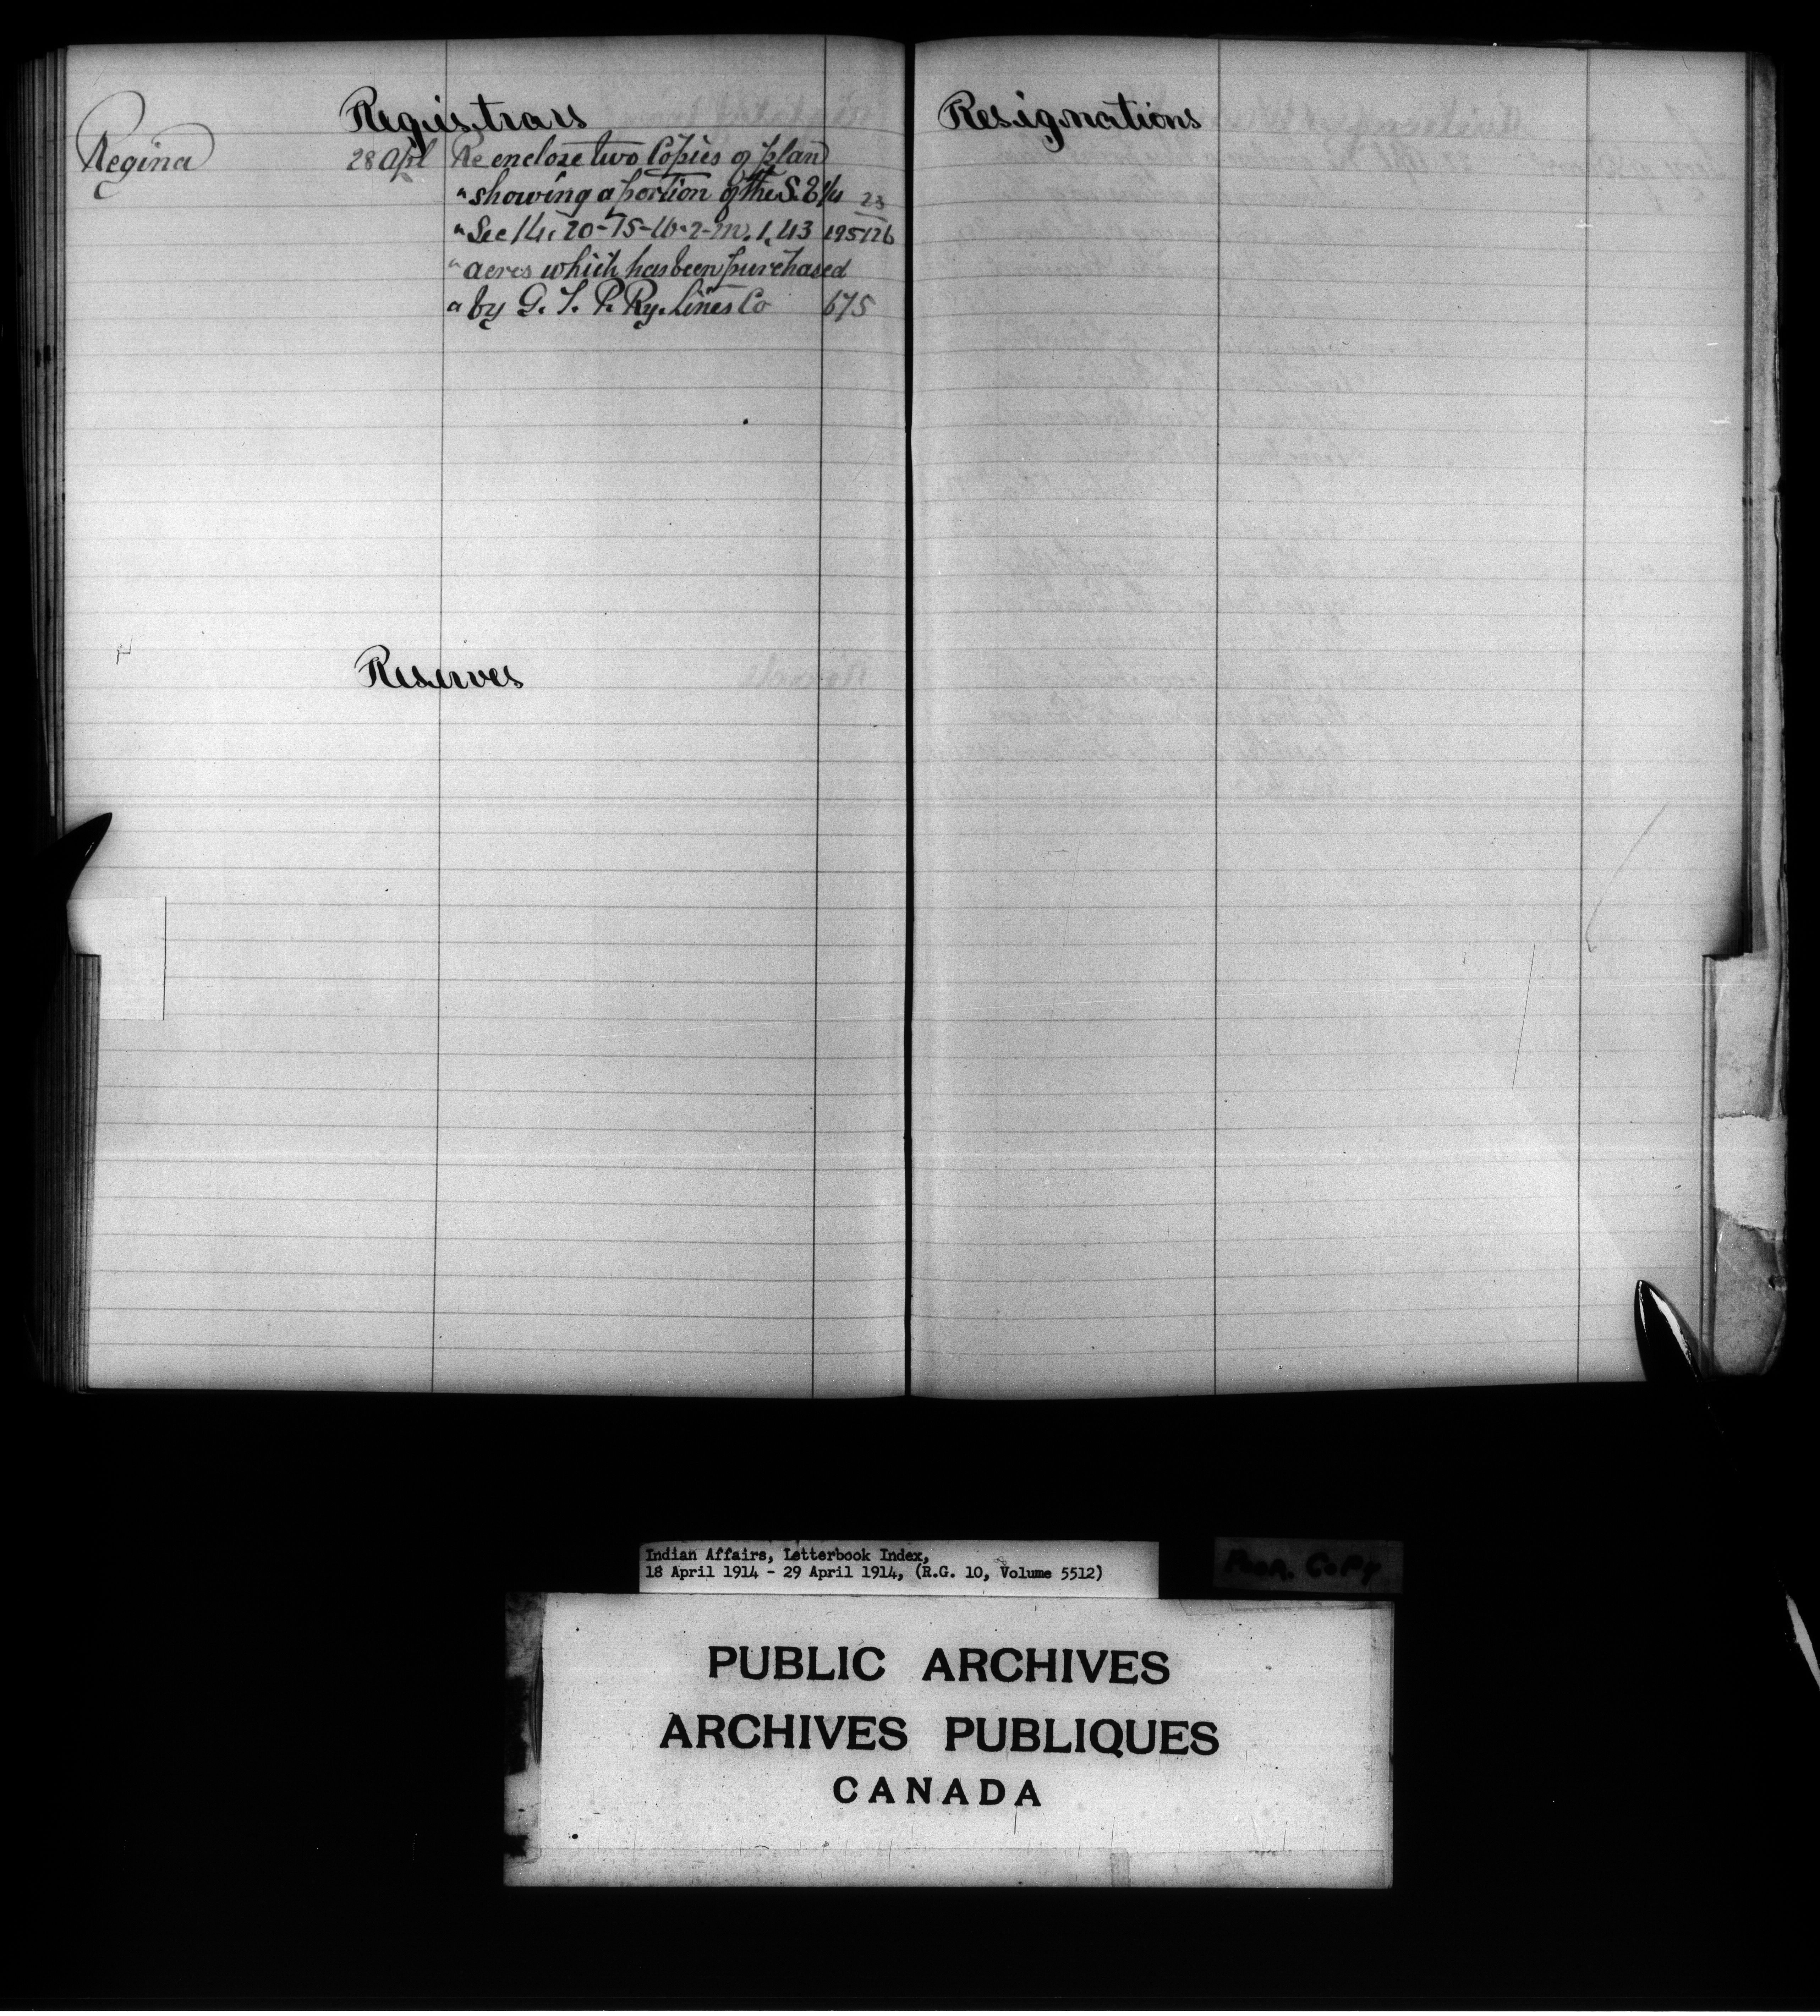 Registrars
Regina 28 Apl Re enclose two Copies of plan
" showing a portion of the S. E 1/4 23
" Sec 14, 20-15-W-2-M. 1,43 195126
" acres which has been purchased
" by G. T. P. Ry. Lines Co 675
Reserves
Resignations
Indian Affairs, Letterbook Index,
18 April 1914 - 29 April 1914, (R.G. 10, Volume 5512)
Poor Copy
PUBLIC ARCHIVES
ARCHIVES PUBLIQUES
CANADA